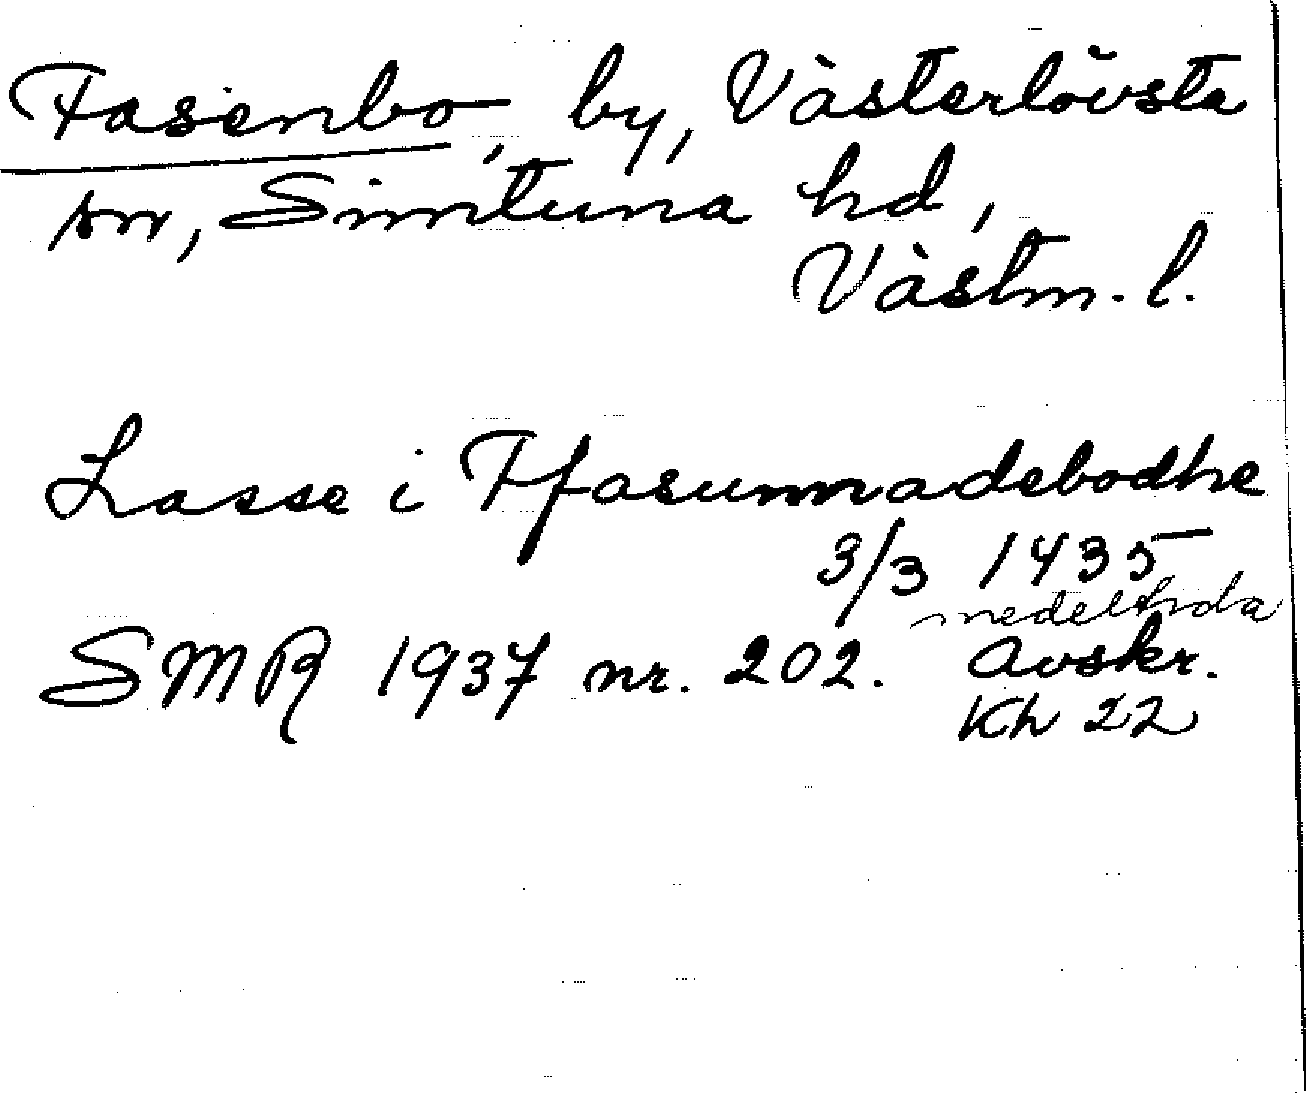 Fasenbo, by, Västerlövsta
sn, Simtuna hd,
Västm. l.
Lasse i Ffasunnadebodhe
3/3 1435
medeltida
SMR 1937 nr. 202. Avskr.
Kh 22